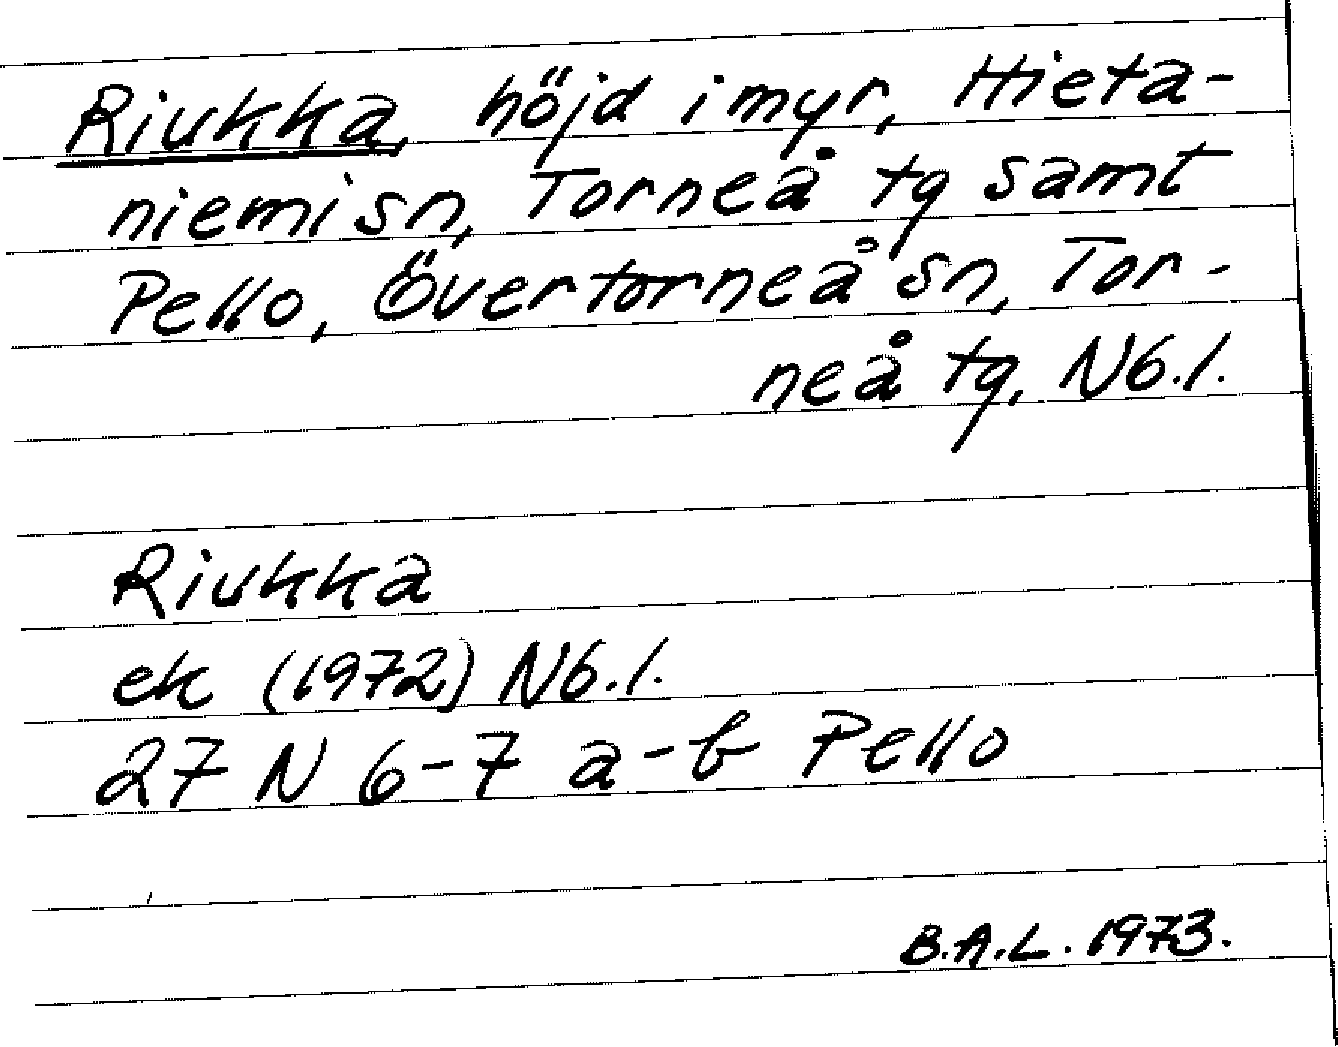 Riukka, höjd i myr, Hieta-
niemi sn, Torneå tg samt
Pello, Övertorneå sn, Tor-
neå tg, Nb.l.
Riukka
ek (1972) Nb.l.
27 N 6-7 a-b Pello
B.A.L. 1973.